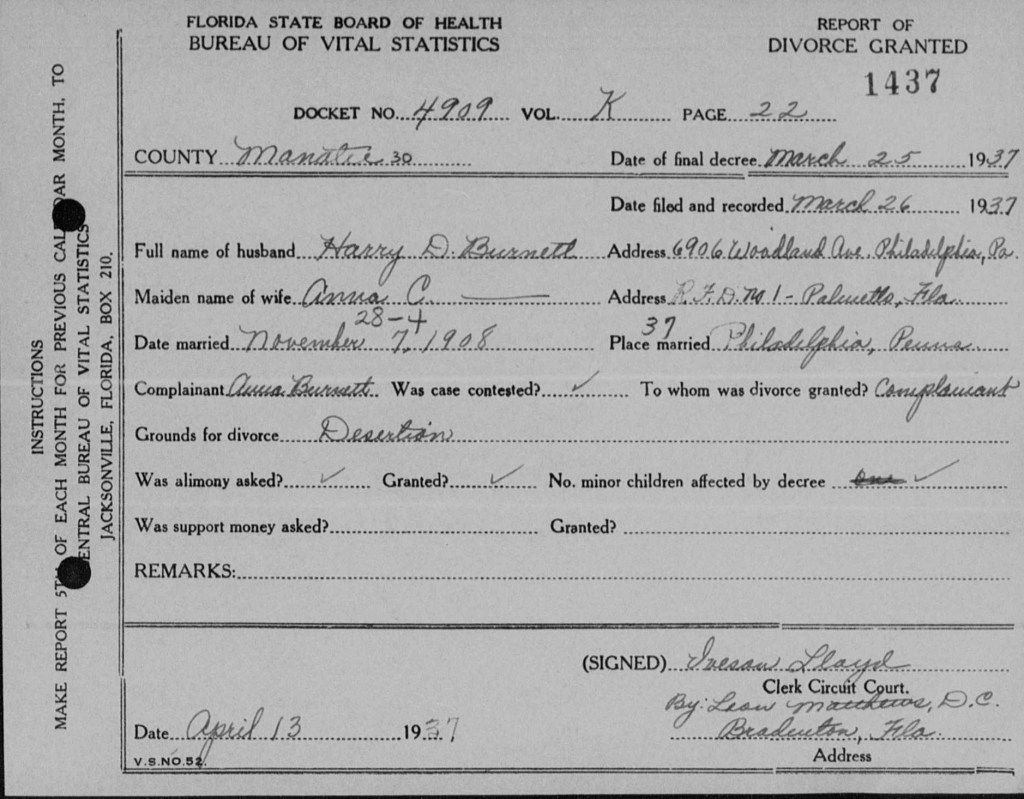 FLORIDA STATE BOARD OF HEALTH
BUREAU OF VITAL STATISTICS
REPORT OF
DIVORCE GRANTED
1437
DOCKET NO. 4909 VOL. K PAGE 22
COUNTY Manatee 30 Date of final decree March 25 1937
Date filed and recorded March 26 1937
Full name of husband Harry D. Burnett Address 6906 Woodland Ave. Philadelphia, Pa.
Maiden name of wife Anna C. Address R.F.D. No 1 - Palmetto, Fla.
28-4 37
Date married November 7, 1908 Place married Philadelphia, Penna.
Complainant Anna Burnett Was case contested? ✓ To whom was divorce granted? Complainant
Grounds for divorce Desertion
Was alimony asked? ✓ Granted? ✓ No. minor children affected by decree one ✓
Was support money asked? Granted?
REMARKS:
(SIGNED) Iveson Lloyd
Clerk Circuit Court.
By: Leon Matthews, D.C.
Date April 13 1937 Bradenton, Fla.
Address
V.S.NO.52.
INSTRUCTIONS
MAKE REPORT 5TH OF EACH MONTH FOR PREVIOUS CALENDAR MONTH, TO
CENTRAL BUREAU OF VITAL STATISTICS
JACKSONVILLE, FLORIDA, BOX 210.